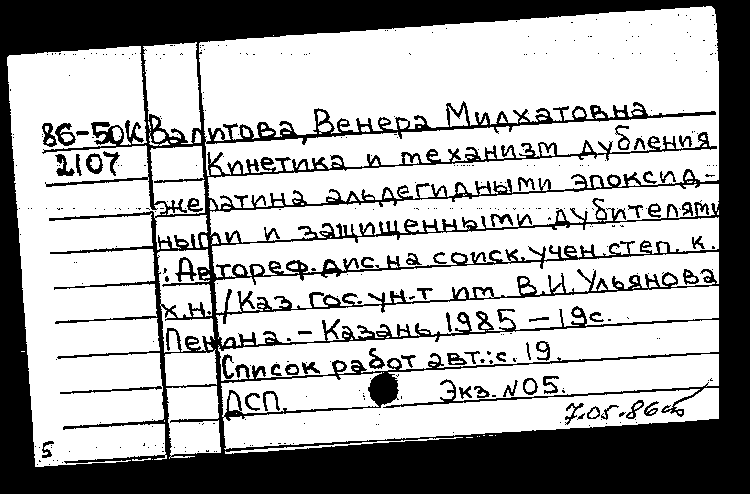 86-50К Валитова, Венера Мидхатовна.
2107 Кинетика и механизм дубления
желатина альдегидными эпоксид-
ными и защищенными дубителями
: Автореф.дис.на соиск.учен.степ. к.
х.н. /Каз. гос. ун-т им. В.И. Ульянова
Ленина. - Казань, 1985 - 19с.
Список работ авт.: с. 19.
ДСП. Экз. №05.
7.05.86
5